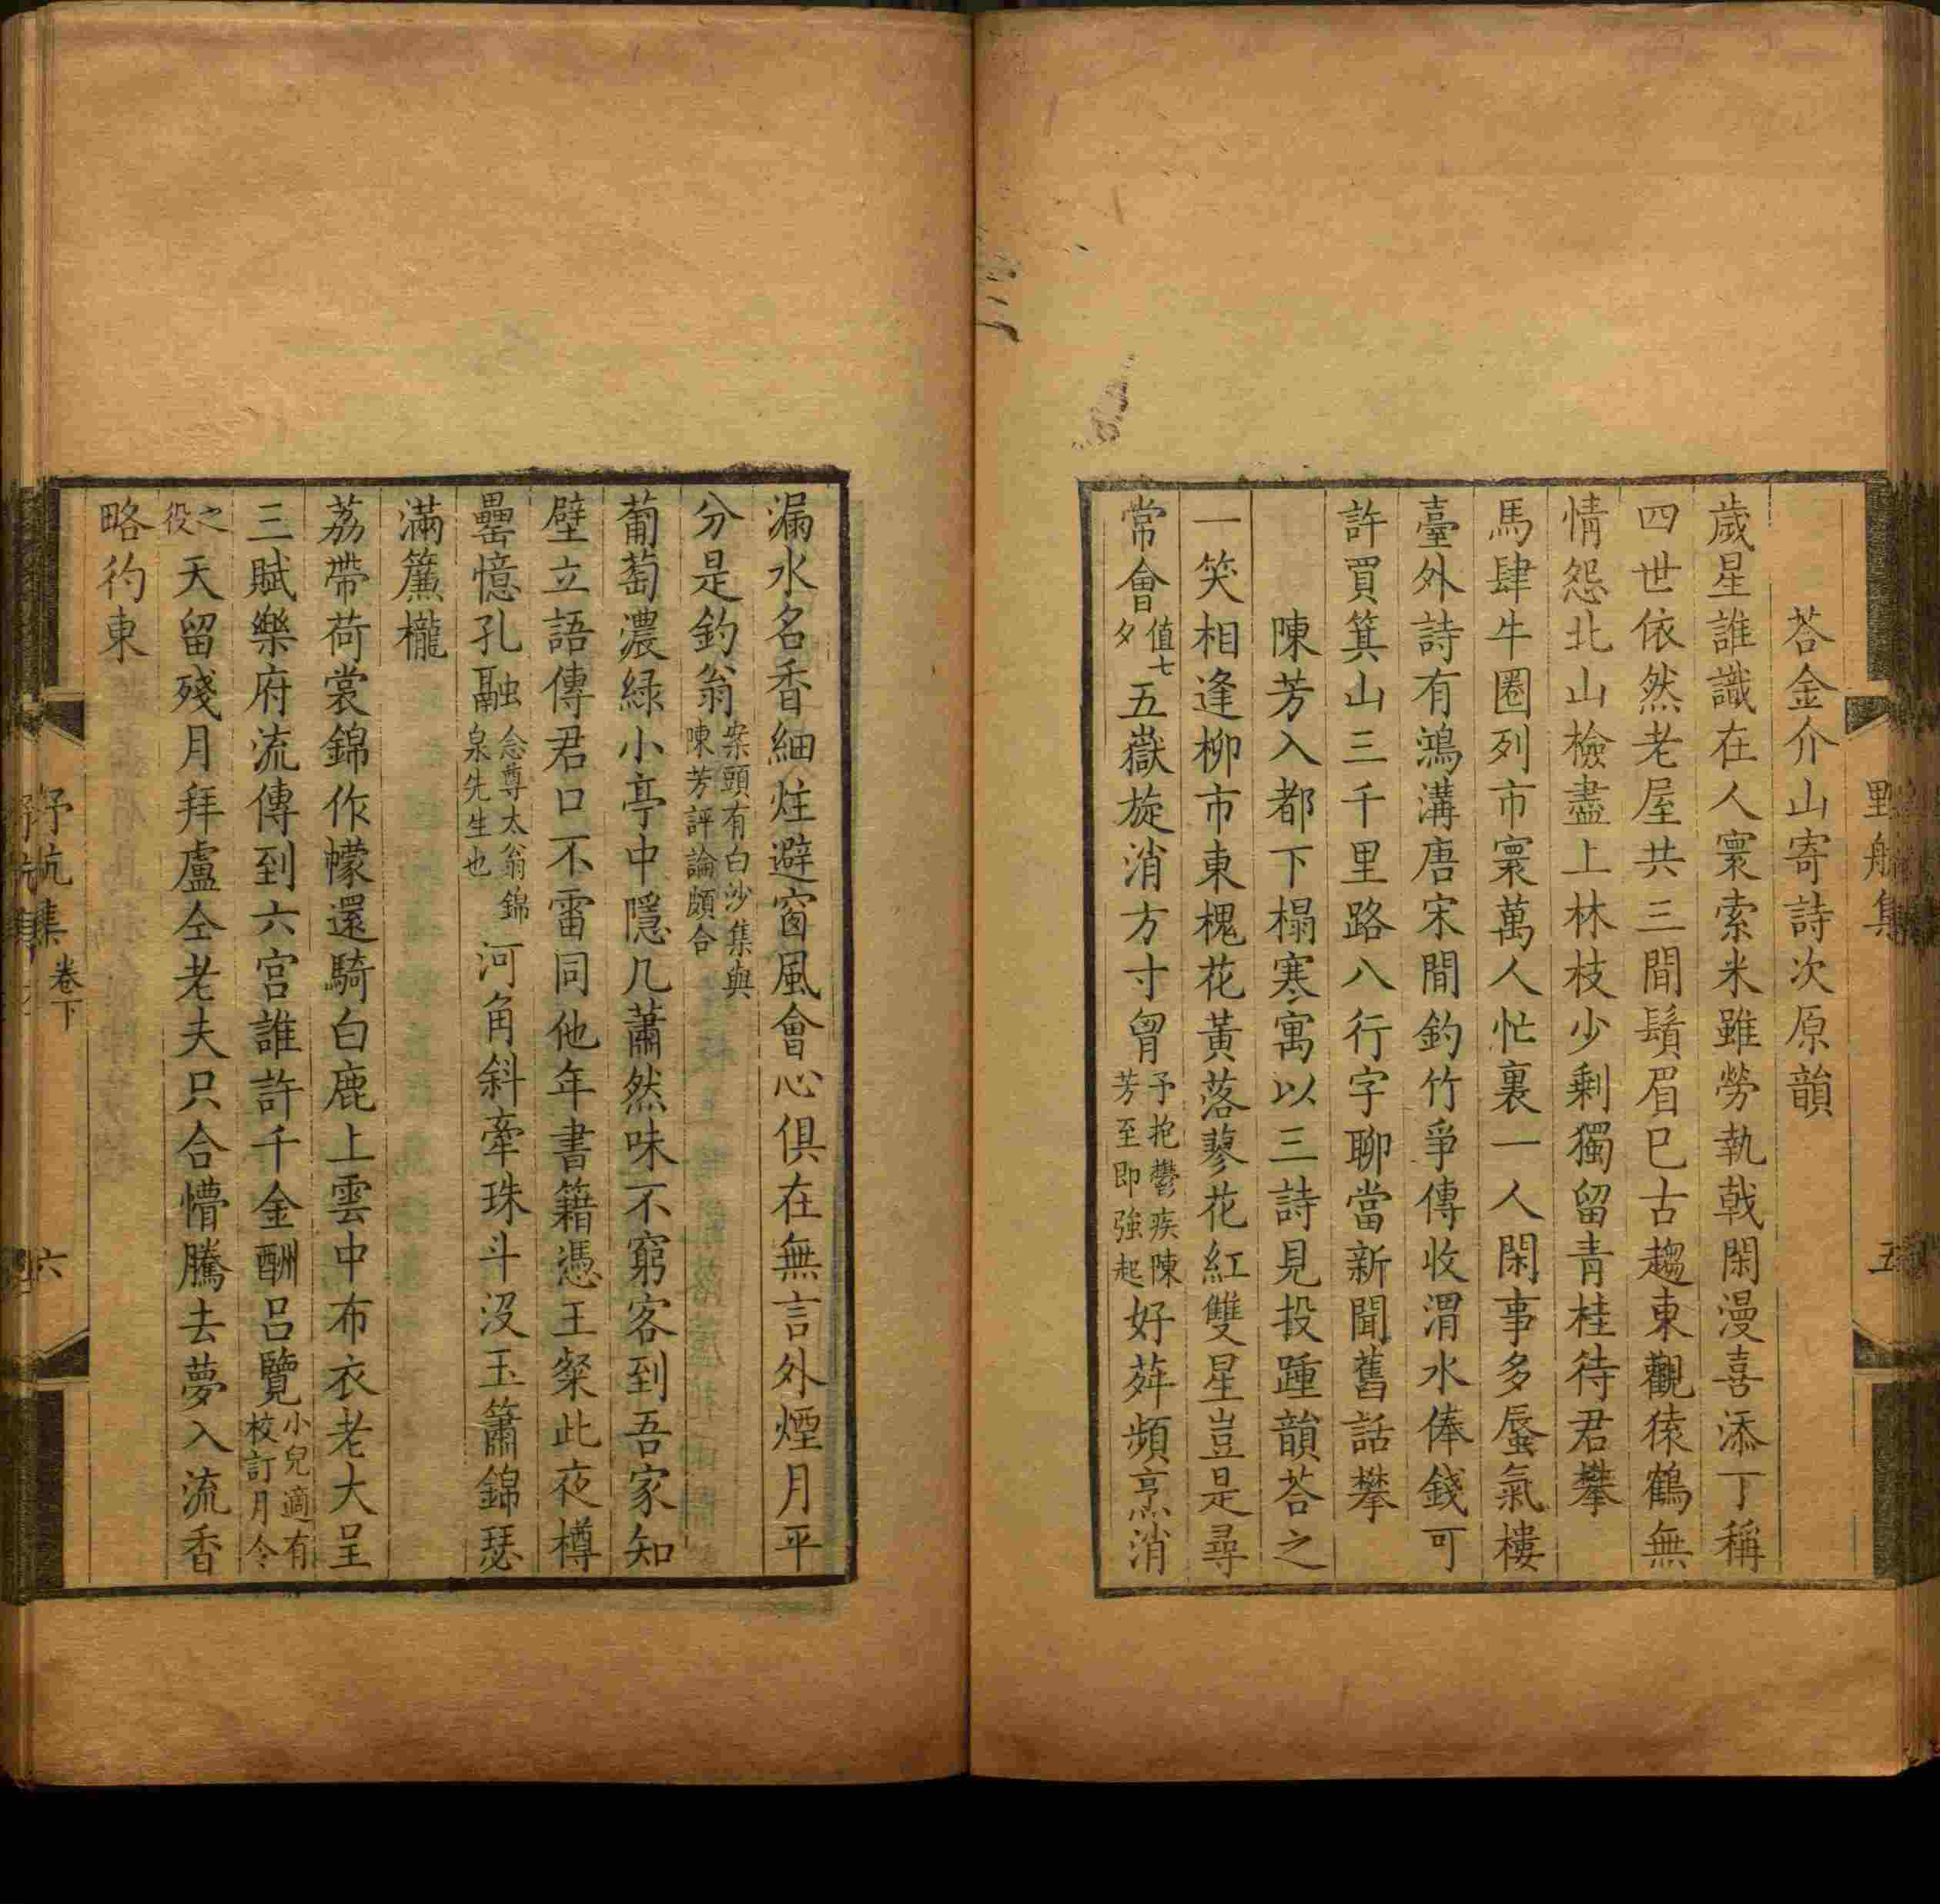 荅金介山寄詩次原韻
歲星誰識在人寰索米雖勞執戟閑漫喜添丁稱
四世依然老屋共三間鬚眉巳古趨東觀猿鶴無
情怨北山檢盡上林枝少剩獨留青桂待君攀
馬肆牛圈列市寰萬人忙裏一人閑事多蜃氣樓
臺外詩有鴻溝唐宋間釣竹爭傳收渭水俸錢可
許買箕山三千里路八行字聊當新聞舊話攀
陳芳入都下榻寒寓以三詩見投踵韻荅之
一笑相逢柳市東槐花黃落蓼花紅雙星豈是尋
常會值七夕五嶽旋消方寸胷予抱鬱疾陳芳至即強起好茻頻烹消
漏水名香細炷避窗風會心俱在無言外煙月平
分是釣翁案頭有白沙集與陳芳評論頗合
葡萄濃緑小亭中隱几蕭然味不窮客到吾家知
壁立語傳君口不雷同他年書籍憑王粲此夜樽
罍憶孔融念尊太翁錦泉先生也河角斜牽珠斗沒玉簫錦瑟
滿簾櫳
荔帶荷裳錦作幪還騎白鹿上雲中布衣老大呈
三賦樂府流傳到六宮誰許千金酬呂覽小兒適有校訂月令
之役天留殘月拜盧仝老夫只合懵騰去夢入流香
略彴東
卷下
六